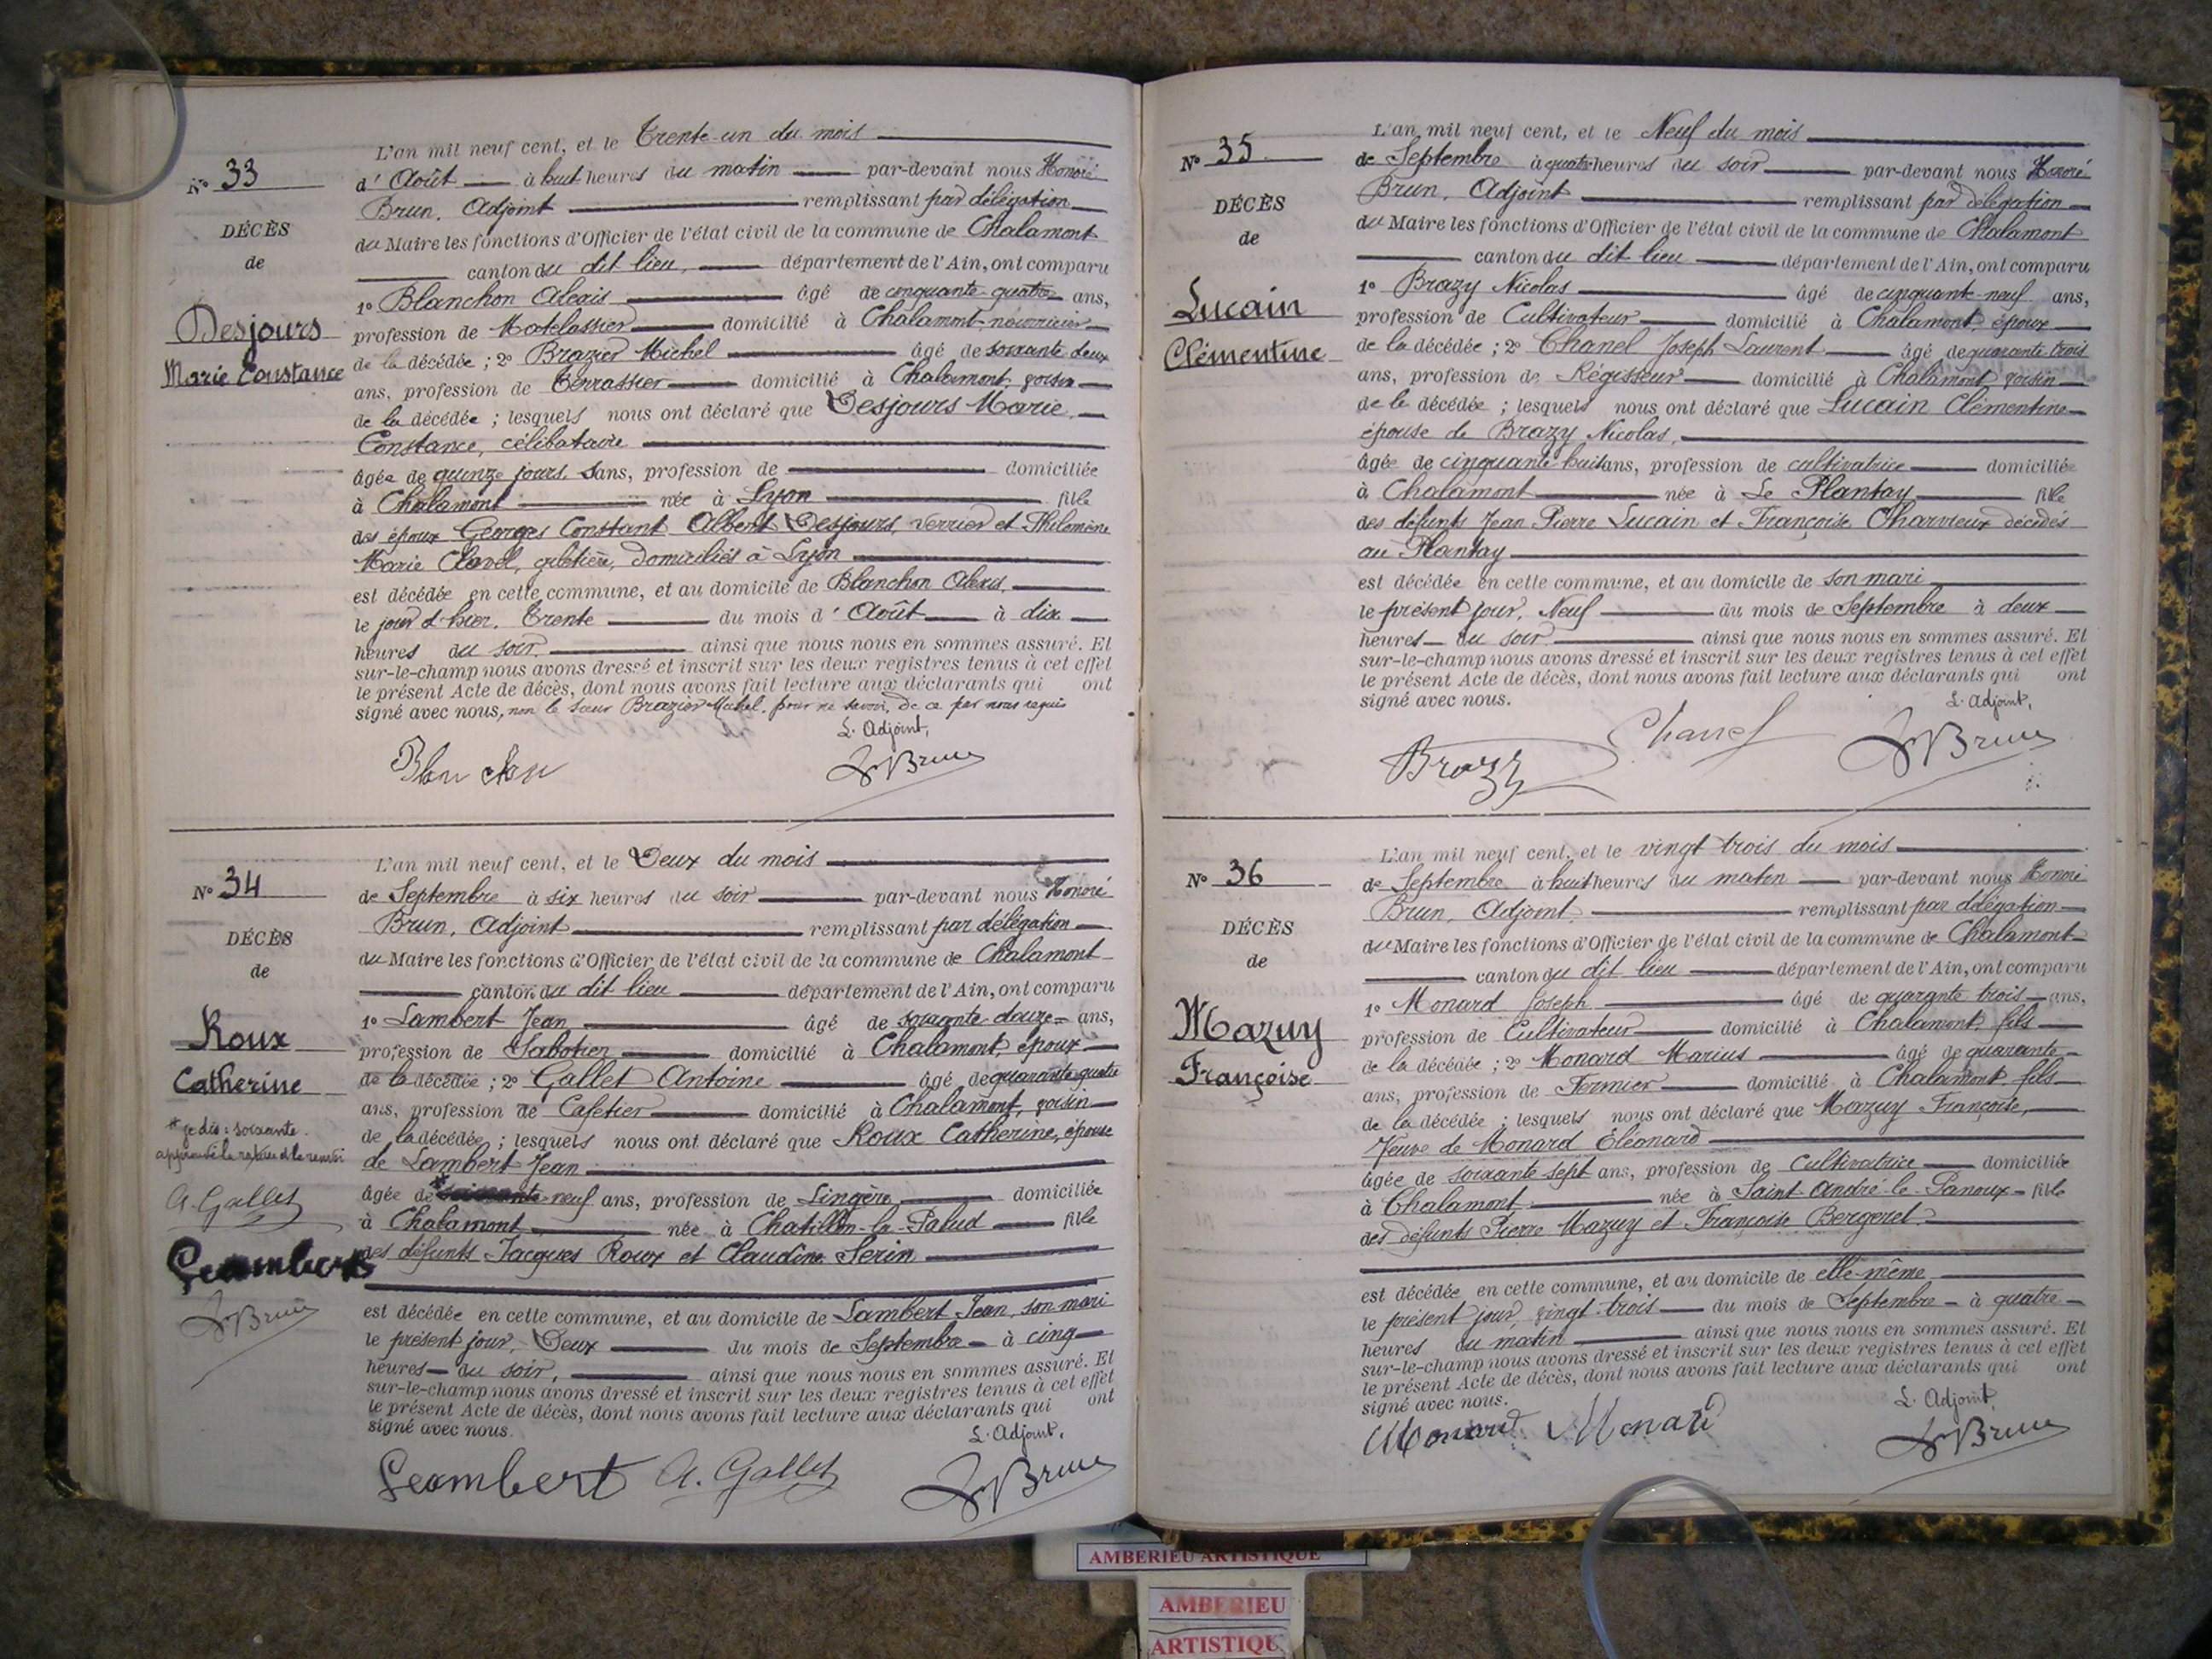 N° 33
DÉCÈS
de
Desjours
Marie Constance
L'an mil neuf cent, et le Trente-un du mois
d'Août à huit heures du matin par-devant nous Honoré
Brun, Adjoint remplissant par délégation
du Maire les fonctions d'Officier de l'état civil de la commune de Chalamont
canton du dit lieu, département de l'Ain, ont comparu
1° Blanchon Alexis âgé de cinquante-quatre ans,
profession de Matelassier domicilié à Chalamont nourricier
de la décédée ; 2° Brazier Michel âgé de soixante deux
ans, profession de Terrassier domicilié à Chalamont, voisin
de la décédée ; lesquels nous ont déclaré que Desjours Marie
Constance, célibataire
âgée de quinze jours. Sans, profession de domiciliée
à Chalamont née à Lyon fille
des époux Georges Constant Albert Desjours, verrier et Philomène
Marie Clavel, giletière, domiciliés à Lyon
est décédée en cette commune, et au domicile de Blanchon Alexis,
le jour d'hier, Trente du mois d'Août à dix
heures du soir. ainsi que nous nous en sommes assuré. Et
sur-le-champ nous avons dressé et inscrit sur les deux registres tenus à cet effet
le présent Acte de décès, dont nous avons fait lecture aux déclarants qui ont
signé avec nous, non le sieur Brazier Michel, pour ne savoir, de ce par nous requis
L'Adjoint,
Blanchon
H Brun
N° 34
DÉCÈS
de
Roux
Catherine
* je dis : soixante.
approuvé la rature et le renvoi
A. Gallet
Leambert
H Brun
L'an mil neuf cent, et le Deux du mois
de Septembre à six heures du soir par-devant nous Honoré
Brun, Adjoint remplissant par délégation
du Maire les fonctions d'Officier de l'état civil de la commune de Chalamont
canton du dit lieu département de l'Ain, ont comparu
1° Lambert Jean âgé de soixante-douze ans,
profession de Sabotier domicilié à Chalamont, époux
de la décédée ; 2° Gallet Antoine âgé de quarante-quatre
ans, profession de Cafetier domicilié à Chalamont, voisin
de la décédée ; lesquels nous ont déclaré que Roux Catherine, épouse
de Lambert Jean
âgée de * neuf ans, profession de Lingère domiciliée
à Chalamont née à Chatillon-la-Palud fille
des défunts Jacques Roux et Claudine Serin
est décédée en cette commune, et au domicile de Lambert Jean, son mari
le présent jour, Deux du mois de Septembre à cinq
heures du soir, ainsi que nous nous en sommes assuré. Et
sur-le-champ nous avons dressé et inscrit sur les deux registres tenus à cet effet
le présent Acte de décès, dont nous avons fait lecture aux déclarants qui ont
signé avec nous.
L'Adjoint,
Leambert A. Gallet
H Brun
N° 35
DÉCÈS
de
Lucain
Clémentine
L'an mil neuf cent, et le Neuf du mois
de Septembre à quatre heures du soir par-devant nous Honoré
Brun, Adjoint remplissant par délégation
du Maire les fonctions d'Officier de l'état civil de la commune de Chalamont
canton du dit lieu département de l'Ain, ont comparu
1° Brazy Nicolas âgé de cinquante neuf ans,
profession de Cultivateur domicilié à Chalamont, époux
de la décédée ; 2° Chanel Joseph Laurent âgé de quarante trois
ans, profession de Régisseur domicilié à Chalamont, voisin
de la décédée ; lesquels nous ont déclaré que Lucain Clémentine
épouse de Brazy Nicolas,
âgée de cinquante huit ans, profession de cultivatrice domiciliée
à Chalamont née à Le Plantay fille
des défunts Jean Pierre Lucain et Françoise Charvieux décédés
au Plantay
est décédée en cette commune, et au domicile de son mari
le présent jour, Neuf du mois de Septembre à deux
heures du soir ainsi que nous nous en sommes assuré. Et
sur-le-champ nous avons dressé et inscrit sur les deux registres tenus à cet effet
le présent Acte de décès, dont nous avons fait lecture aux déclarants qui ont
signé avec nous.
L'Adjoint,
Brazy Chanel
H Brun
N° 36
DÉCÈS
de
Mazuy
Françoise
L'an mil neuf cent, et le vingt trois du mois
de Septembre à huit heures du matin par-devant nous Honoré
Brun, Adjoint remplissant par délégation
du Maire les fonctions d'Officier de l'état civil de la commune de Chalamont
canton du dit lieu département de l'Ain, ont comparu
1° Monard Joseph âgé de quarante trois ans,
profession de Cultivateur domicilié à Chalamont, fils
de la décédée ; 2° Monard Marius âgé de quarante
ans, profession de Fermier domicilié à Chalamont fils
de la décédée ; lesquels nous ont déclaré que Mazuy Françoise,
Veuve de Monard Éléonard
âgée de soixante sept ans, profession de Cultivatrice domiciliée
à Chalamont née à Saint-André-le-Panoux fille
des défunts Pierre Mazuy et Françoise Bergeret
est décédée en cette commune, et au domicile de elle-même
le présent jour, vingt-trois du mois de Septembre à quatre
heures du matin ainsi que nous nous en sommes assuré. Et
sur-le-champ nous avons dressé et inscrit sur les deux registres tenus à cet effet
le présent Acte de décès, dont nous avons fait lecture aux déclarants qui ont
signé avec nous.
L'Adjoint,
Monard Monard
H Brun
AMBERIEU ARTISTIQUE
AMBERIEU
ARTISTIQU